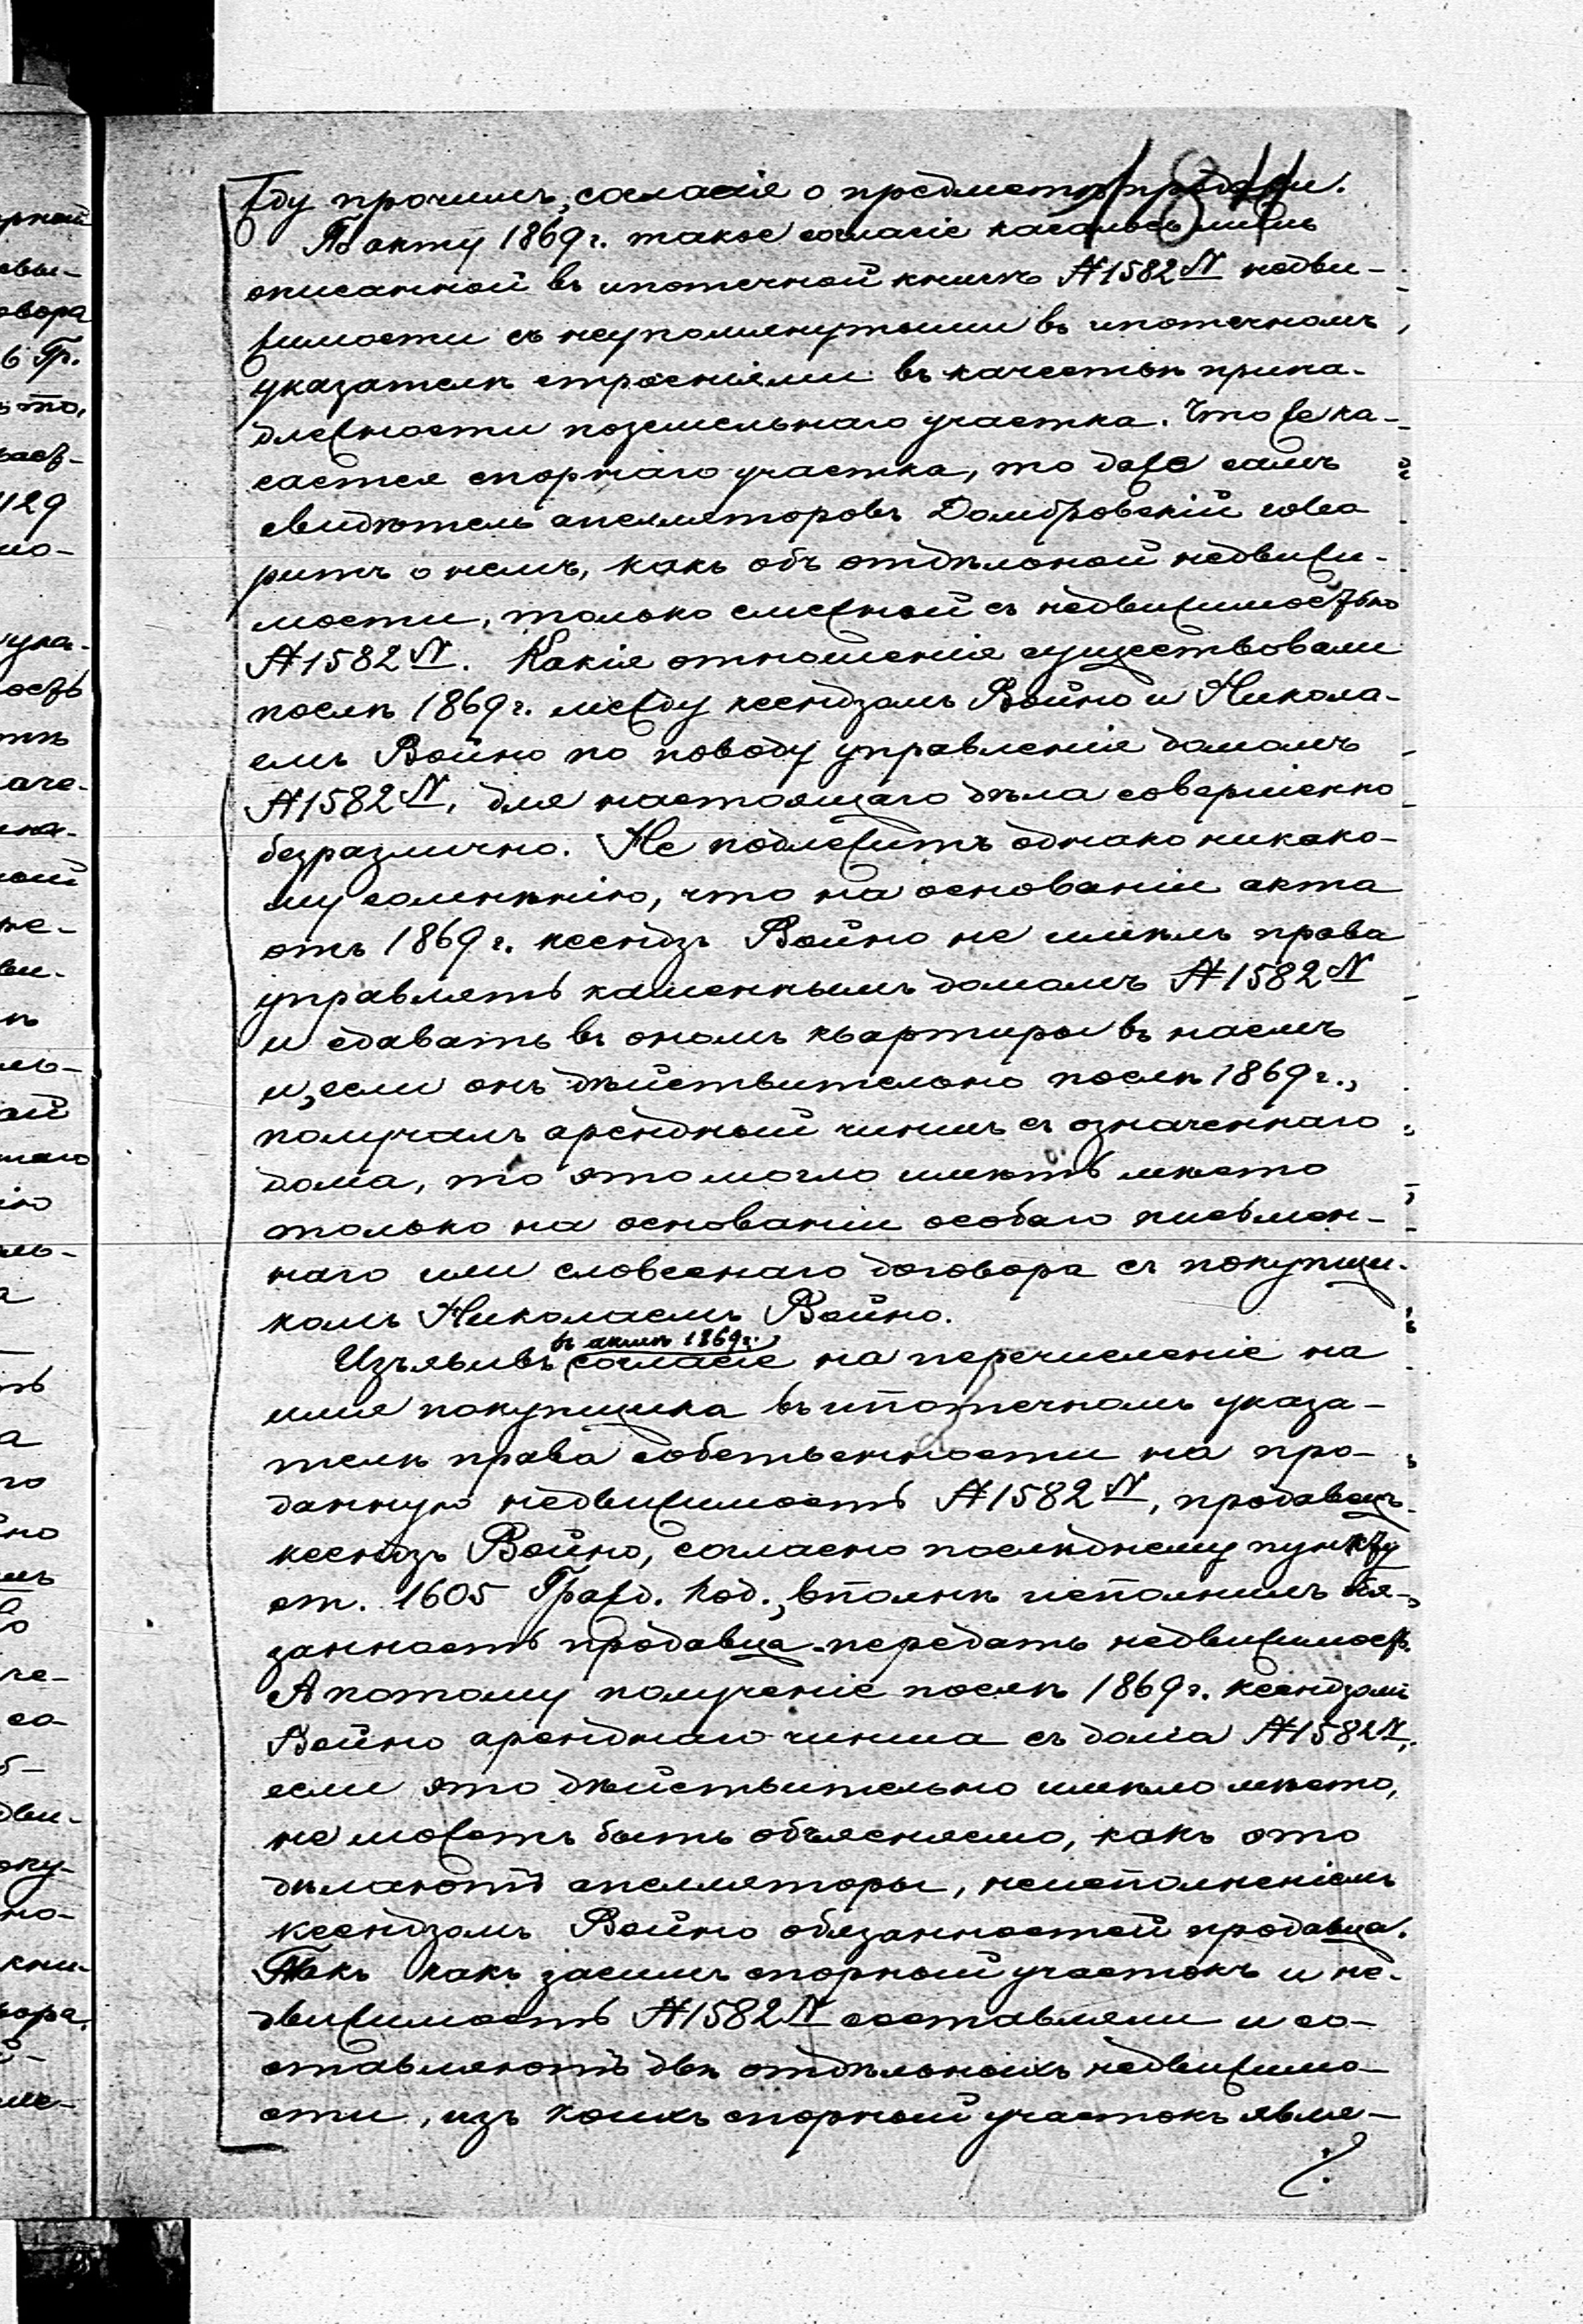 184
жду прочимъ, согласія о предметѣ продажи.
По акту 1869 г. такое согласіе касалось лишь
описанной въ ипотечной книгѣ №1582 N недви-
жимости съ неупомянутыми въ ипотечномъ
указателѣ строеніями въ качествѣ прина-
длежности поземельнаго участка. Что же ка-
сается спорнаго участка, то даже самъ
свидѣтель апелляторовъ Домбровскій гово
ритъ о немъ, какъ объ отдѣльной недвижи-
мости, только смежной съ недвижимостью
№1582 N. Какія отношенія существовали
послѣ 1869 г. между ксендзомъ Войно и Никола-
емъ Войно по поводу управленія домомъ
№1582 N, для настоящаго дѣла совершенно
безразлично. Не подлежитъ однако никако-
му сомнѣнію, что на основаніи акта
отъ 1869 г. ксендзъ Войно не имѣлъ права
управлять каменнымъ домомъ №1582 N
и сдавать въ ономъ квартиры въ наемъ
и, если онъ дѣйствительно послѣ 1869 г.,
получалъ арендный чиншъ съ означеннаго
дома, то это могло имѣть мѣсто
только на основаніи особаго письмен-
наго или словеснаго договора съ покупщи-
комъ Николаемъ Войно.
въ актѣ 1869 г.
Изъявивъ согласіе на перечисленіе на
имя покупщика въ ипотечномъ указа-
телѣ права собственности на про-
данную недвижимость №1582 N, продавецъ
ксендзъ Войно, согласно послѣднему пункту
ст. 1605 Гражд. Код., вполнѣ исполнилъ обя-
занность продавца передать недвижимость.
А потому полученіе послѣ 1869 г. ксендзомъ
Войно аренднаго чинша съ дома №1582 N,
если это дѣйствительно имѣло мѣсто,
не можетъ быть объясняемо, какъ это
дѣлаютъ апелляторы, неисполненіемъ
ксендзомъ Войно обязанностей продавца.
Такъ какъ засимъ спорный участокъ и не-
движимость №1582 N составляли и со-
ставляютъ двѣ отдѣльныхъ недвижимо-
сти, изъ коихъ спорный участокъ явля-